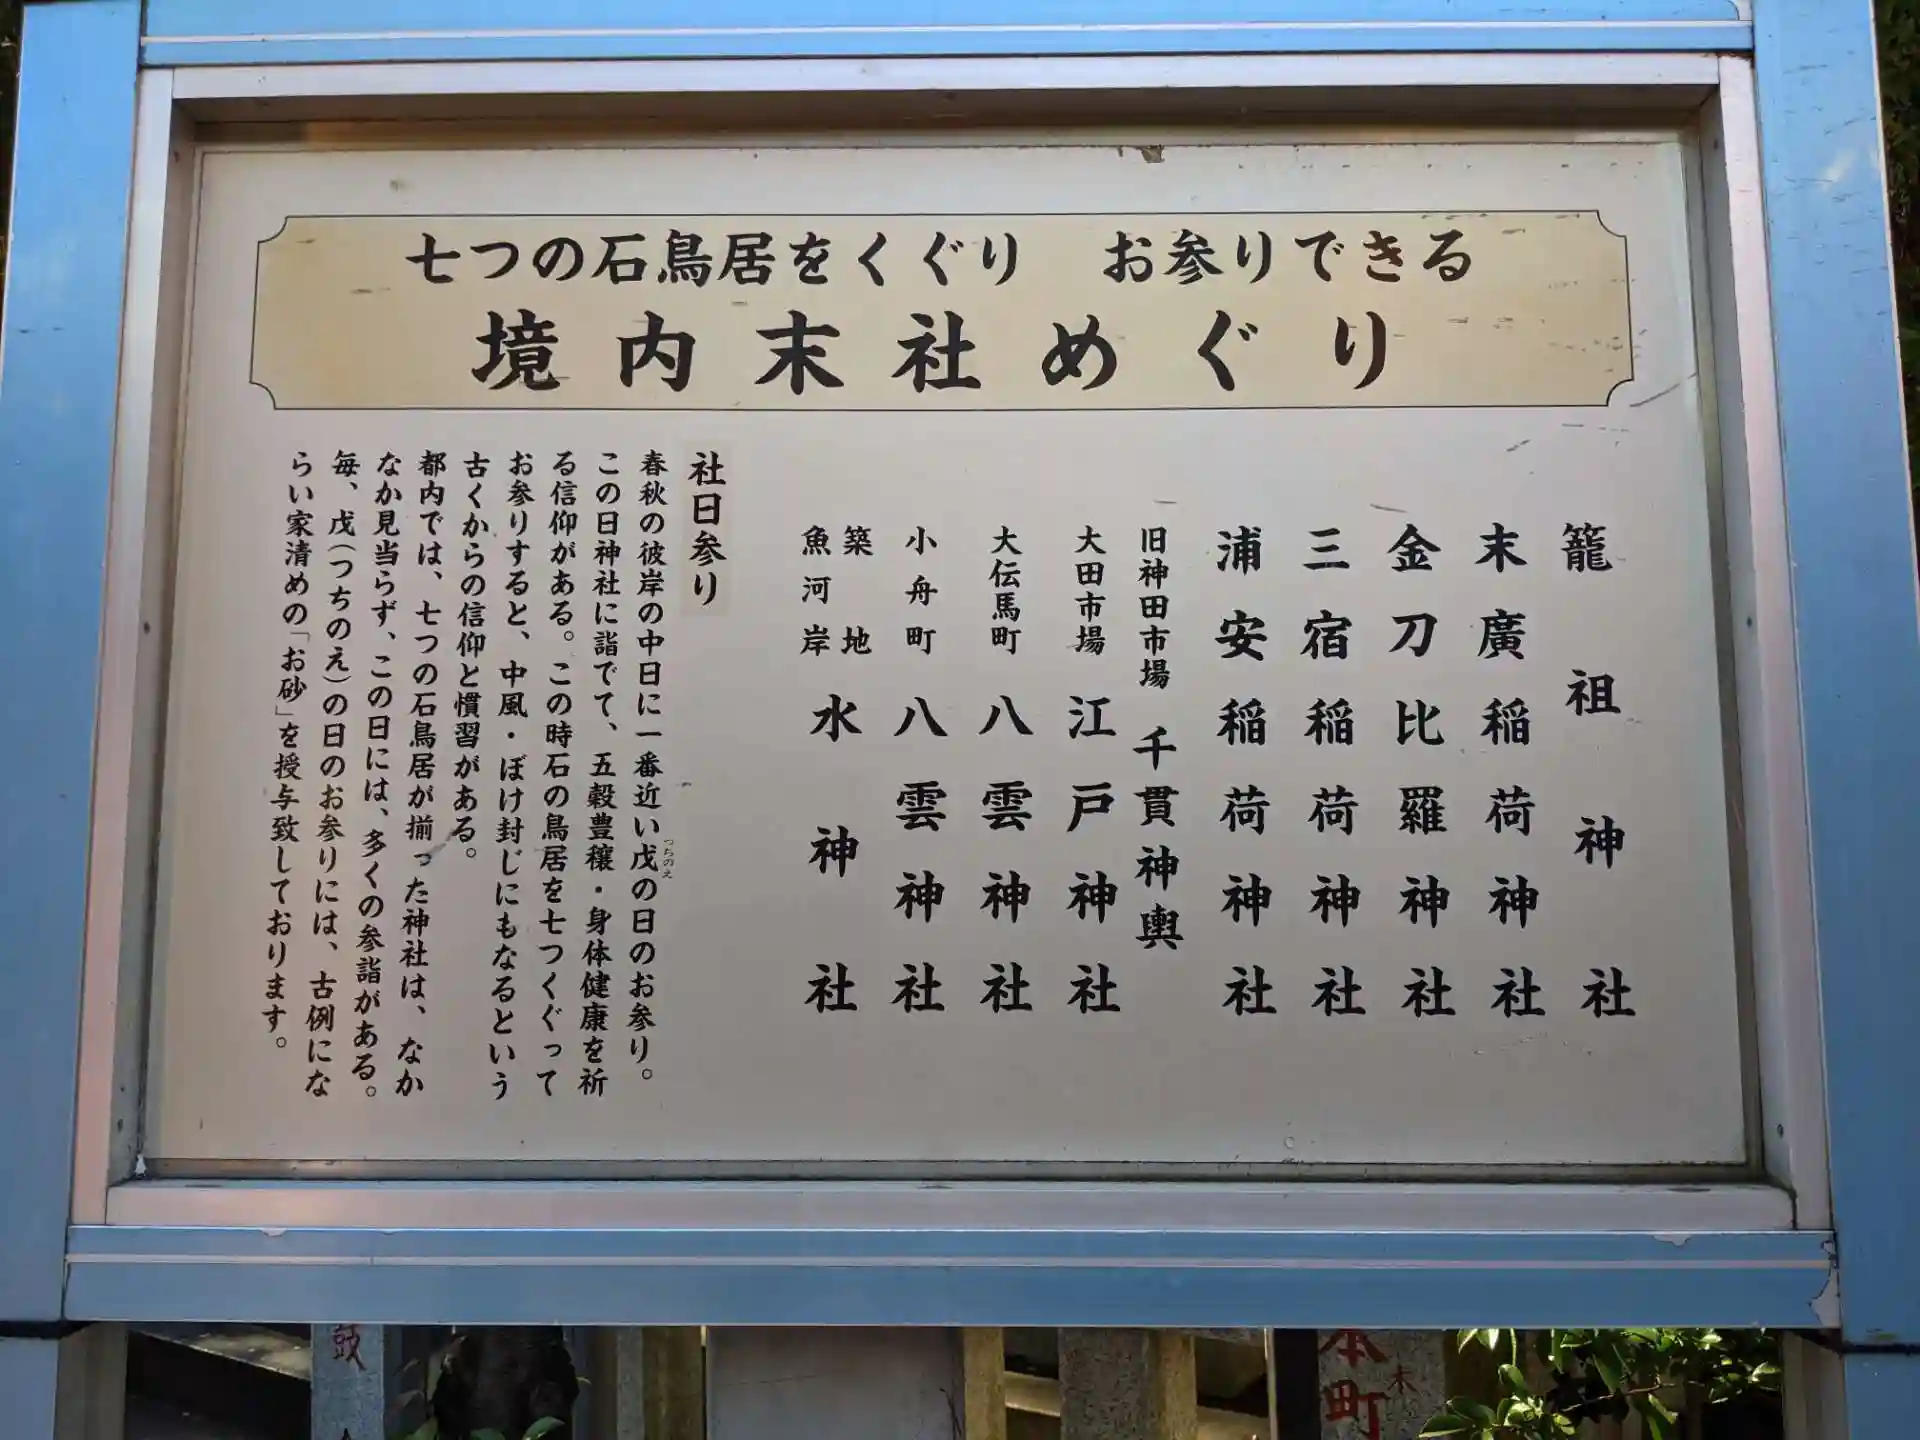 七つの石鳥居をくぐり　お参りできる
境内末社めぐり
籠祖神社
末廣稲荷神社
金刀比羅神社
三宿稲荷神社
浦安稲荷神社
旧神田市場 千貫神輿
大田市場 江戸神社
大伝馬町 八雲神社
小舟町 八雲神社
築地
魚河岸 水神社
社日参り
春秋の彼岸の中日に一番近い戊の日のお参り。
つちのえ
この日神社に詣でて、五穀豊穣・身体健康を祈
る信仰がある。この時石の鳥居を七つくぐって
お参りすると、中風・ぼけ封じにもなるという
古くからの信仰と慣習がある。
都内では、七つの石鳥居が揃った神社は、なか
なか見当らず、この日には、多くの参詣がある。
毎、戊(つちのえ)の日のお参りには、古例にな
らい家清めの「お砂」を授与致しております。
本町